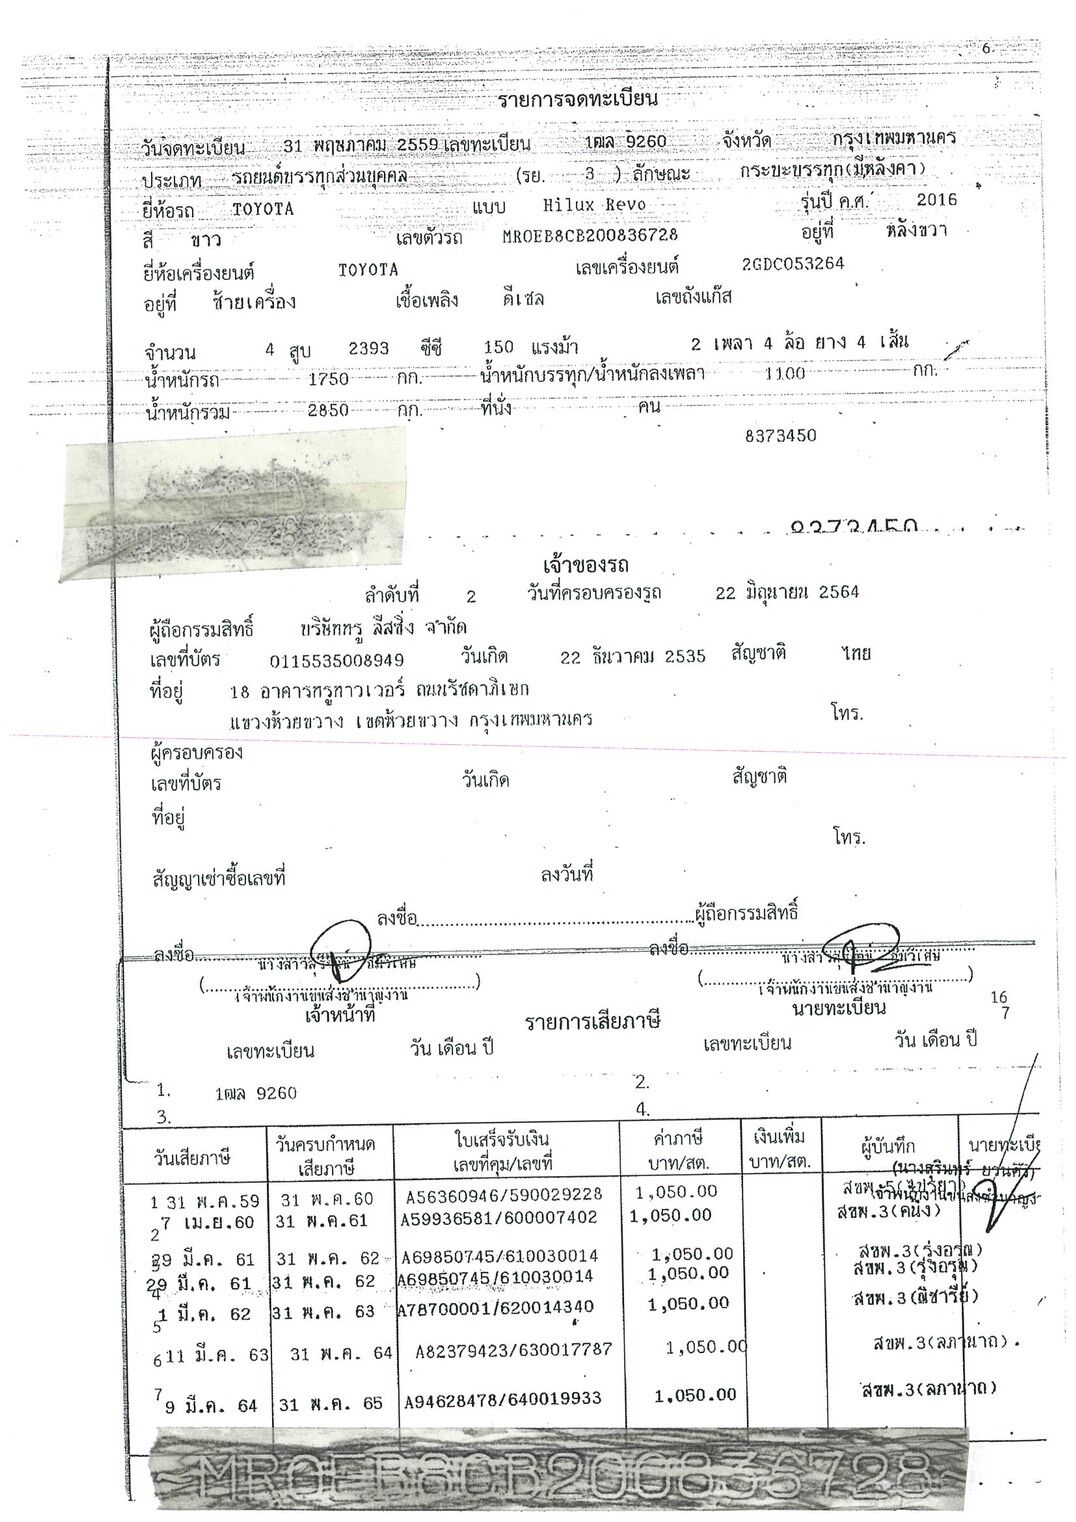 6.
รายการจดทะเบียน
วันจดทะเบียน 31 พฤษภาคม 2559 เลขทะเบียน 1ฒล 9260 จังหวัด กรุงเทพมหานคร
ประเภท รถยนต์บรรทุกส่วนบุคคล (รย. 3 ) ลักษณะ กระบะบรรทุก(มีหลังคา)
ยี่ห้อรถ TOYOTA แบบ Hilux Revo รุ่นปี ค.ศ. 2016
สี ขาว เลขตัวรถ MR0EB8CB200836728 อยู่ที่ หลังขวา
ยี่ห้อเครื่องยนต์ TOYOTA เลขเครื่องยนต์ 2GDC053264
อยู่ที่ ซ้ายเครื่อง เชื้อเพลิง ดีเซล เลขถังแก๊ส
จำนวน 4 สูบ 2393 ซีซี 150 แรงม้า 2 เพลา 4 ล้อ ยาง 4 เส้น
น้ำหนักรถ 1750 กก. น้ำหนักบรรทุก/น้ำหนักลงเพลา 1100 กก.
น้ำหนักรวม 2850 กก. ที่นั่ง คน
8373450
8373450
เจ้าของรถ
ลำดับที่ 2 วันที่ครอบครองรถ 22 มิถุนายน 2564
ผู้ถือกรรมสิทธิ์ บริษัททรู ลีสซิ่ง จำกัด
เลขที่บัตร 0115535008949 วันเกิด 22 ธันวาคม 2535 สัญชาติ ไทย
ที่อยู่ 18 อาคารทรูทาวเวอร์ ถนนรัชดาภิเษก
แขวงห้วยขวาง เขตห้วยขวาง กรุงเทพมหานคร โทร.
ผู้ครอบครอง
เลขที่บัตร วันเกิด สัญชาติ
ที่อยู่
โทร.
สัญญาเช่าซื้อเลขที่ ลงวันที่
ลงชื่อ ผู้ถือกรรมสิทธิ์
ลงชื่อ ลงชื่อ
นางสาว นางสาว
(เจ้าพนักงานขนส่งชำนาญงาน) (เจ้าพนักงานขนส่งชำนาญงาน)
เจ้าหน้าที่ นายทะเบียน 16
รายการเสียภาษี 7
เลขทะเบียน วัน เดือน ปี เลขทะเบียน วัน เดือน ปี
1. 1ฒล 9260 2.
3. 4.
วันเสียภาษี วันครบกำหนดเสียภาษี ใบเสร็จรับเงิน เลขที่คุม/เลขที่ ค่าภาษี บาท/สต. เงินเพิ่ม บาท/สต. ผู้บันทึก นายทะเบี
(นางสุรินทร์
1 31 พ.ค.59 31 พ.ค.60 A56360946/590029228 1,050.00
2 7 เม.ย.60 31 พ.ค.61 A59936581/600007402 1,050.00 สขพ.3(คนึง)
3 29 มี.ค. 61 31 พ.ค. 62 A69850745/610030014 1,050.00 สขพ.3(รุ่งอรุณ)
4 29 มี.ค. 61 31 พ.ค. 62 A69850745/610030014 1,050.00 สขพ.3(รุ่งอรุณ)
5 1 มี.ค. 62 31 พ.ค. 63 A78700001/620014340 1,050.00 สขพ.3(ณิชารีย์)
6 11 มี.ค. 63 31 พ.ค. 64 A82379423/630017787 1,050.00 สขพ.3(ลภานาถ)
7 9 มี.ค. 64 31 พ.ค. 65 A94628478/640019933 1,050.00 สขพ.3(ลภานาถ)
MR0EB8CB200836728